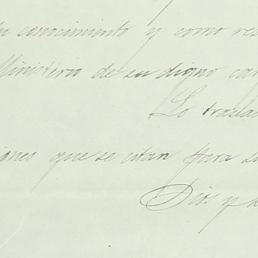 su conocimiento y como res
Ministerio de su digno car
Lo trasla
iones que se citan para su
Dios y